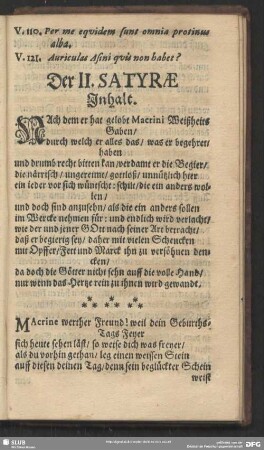 V. 110. Per me eqvidem sunt omnia protinus
alba.
V. 121. Auriculas Asini qvis non habet?
Der II. SATYRÆ
Inhalt.
NAch dem er hat gelobt Macrini Weißheits
Gaben/
durch welch er alles das/ was er begehret/
haben
und drumb recht bitten kan/ verdamt er die Begier/
die närrisch/ ungereimt/ gottloß/ unnützlich hier
ein ieder vor sich wünscht: schilt/ die ein anders wol-
len/
und doch sind anzusehn/ als die ein anders sollen
im Wercke nehmen für: und endlich wird verlacht/
wie der und jener GOtt nach seiner Art betracht/
daß er begierig sey/ daher mit vielen Schencken
mit Opffer/ Fett und Marck ihn zu versöhnen den-
cken/
da doch die Götter nicht sehn auff die volle Hand/
nur wenn das Hertze rein zu ihnen wird gewandt.
MAcrine werther Freund! weil dein Geburths-
Tags Feyer
sich heute sehen läst/ so weise dich was freyer/
als du vorhin gethan/ leg einen weissen Stein
auff diesen deinen Tag/ denn sein beglückter Schein
weist
SLUB
DFG